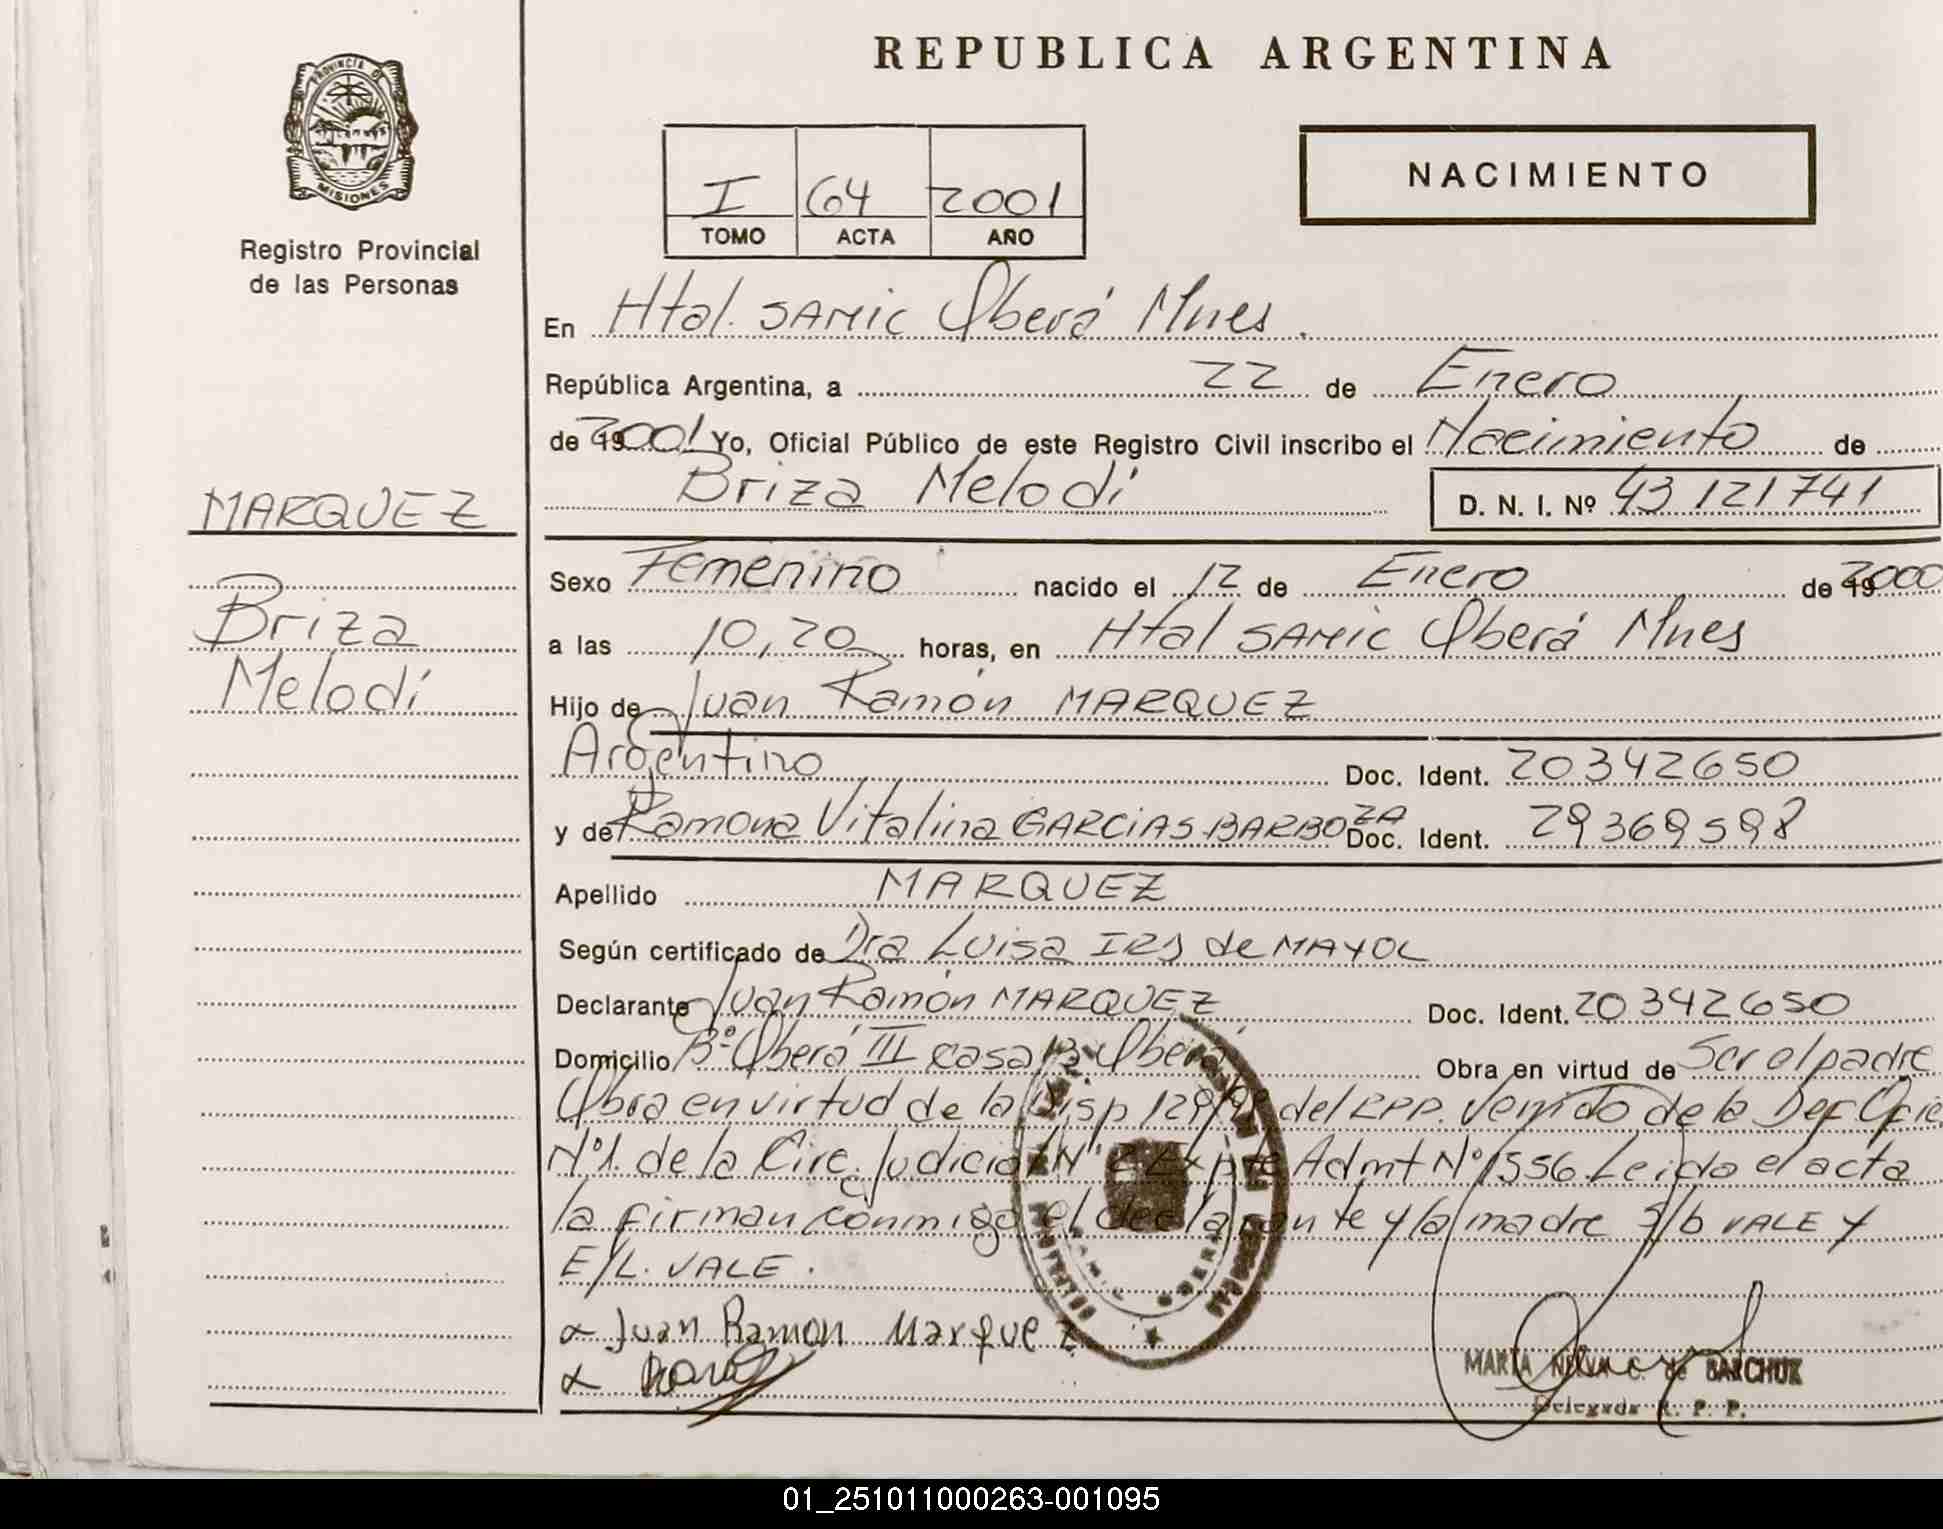 REPUBLICA ARGENTINA
PROVINCIA DE
MISIONES
Registro Provincial
de las Personas
I 64 2001
TOMO ACTA AÑO
NACIMIENTO
En Htal. SAMIC Oberá Mnes.
República Argentina, a 22 de Enero
de 19 2001 Yo, Oficial Público de este Registro Civil inscribo el Nacimiento de
Briza Melodí D. N. I. Nº 43 121741
MARQUEZ
Briza
Melodí
Sexo Femenino nacido el 12 de Enero de 19 2000
a las 10,20 horas, en Htal SAMIC Oberá Mnes
Hijo de Juan Ramón MARQUEZ
Argentino Doc. Ident. 20342650
y de Ramona Vitalina GARCIAS BARBOZA Doc. Ident. 29369598
Apellido MARQUEZ
Según certificado de Dra Luisa de MAYOL
Declarante Juan Ramón MARQUEZ Doc. Ident. 20342650
Domicilio Bº Oberá III casa 13 Oberá Obra en virtud de Ser el padre
Obra en virtud de la Disp del RPP. Venido de la Def Ofic
Nº1. de la Circ. Judicial Nº 2 Expte Admt Nº 1556. Leido el acta
la firman conmigo el declarante y la madre S/b VALE Y
E/L. VALE.
Juan Ramon Marquez
MARIA NELVA C. de BARCHUK
Delegada R. P. P.
01_251011000263-001095